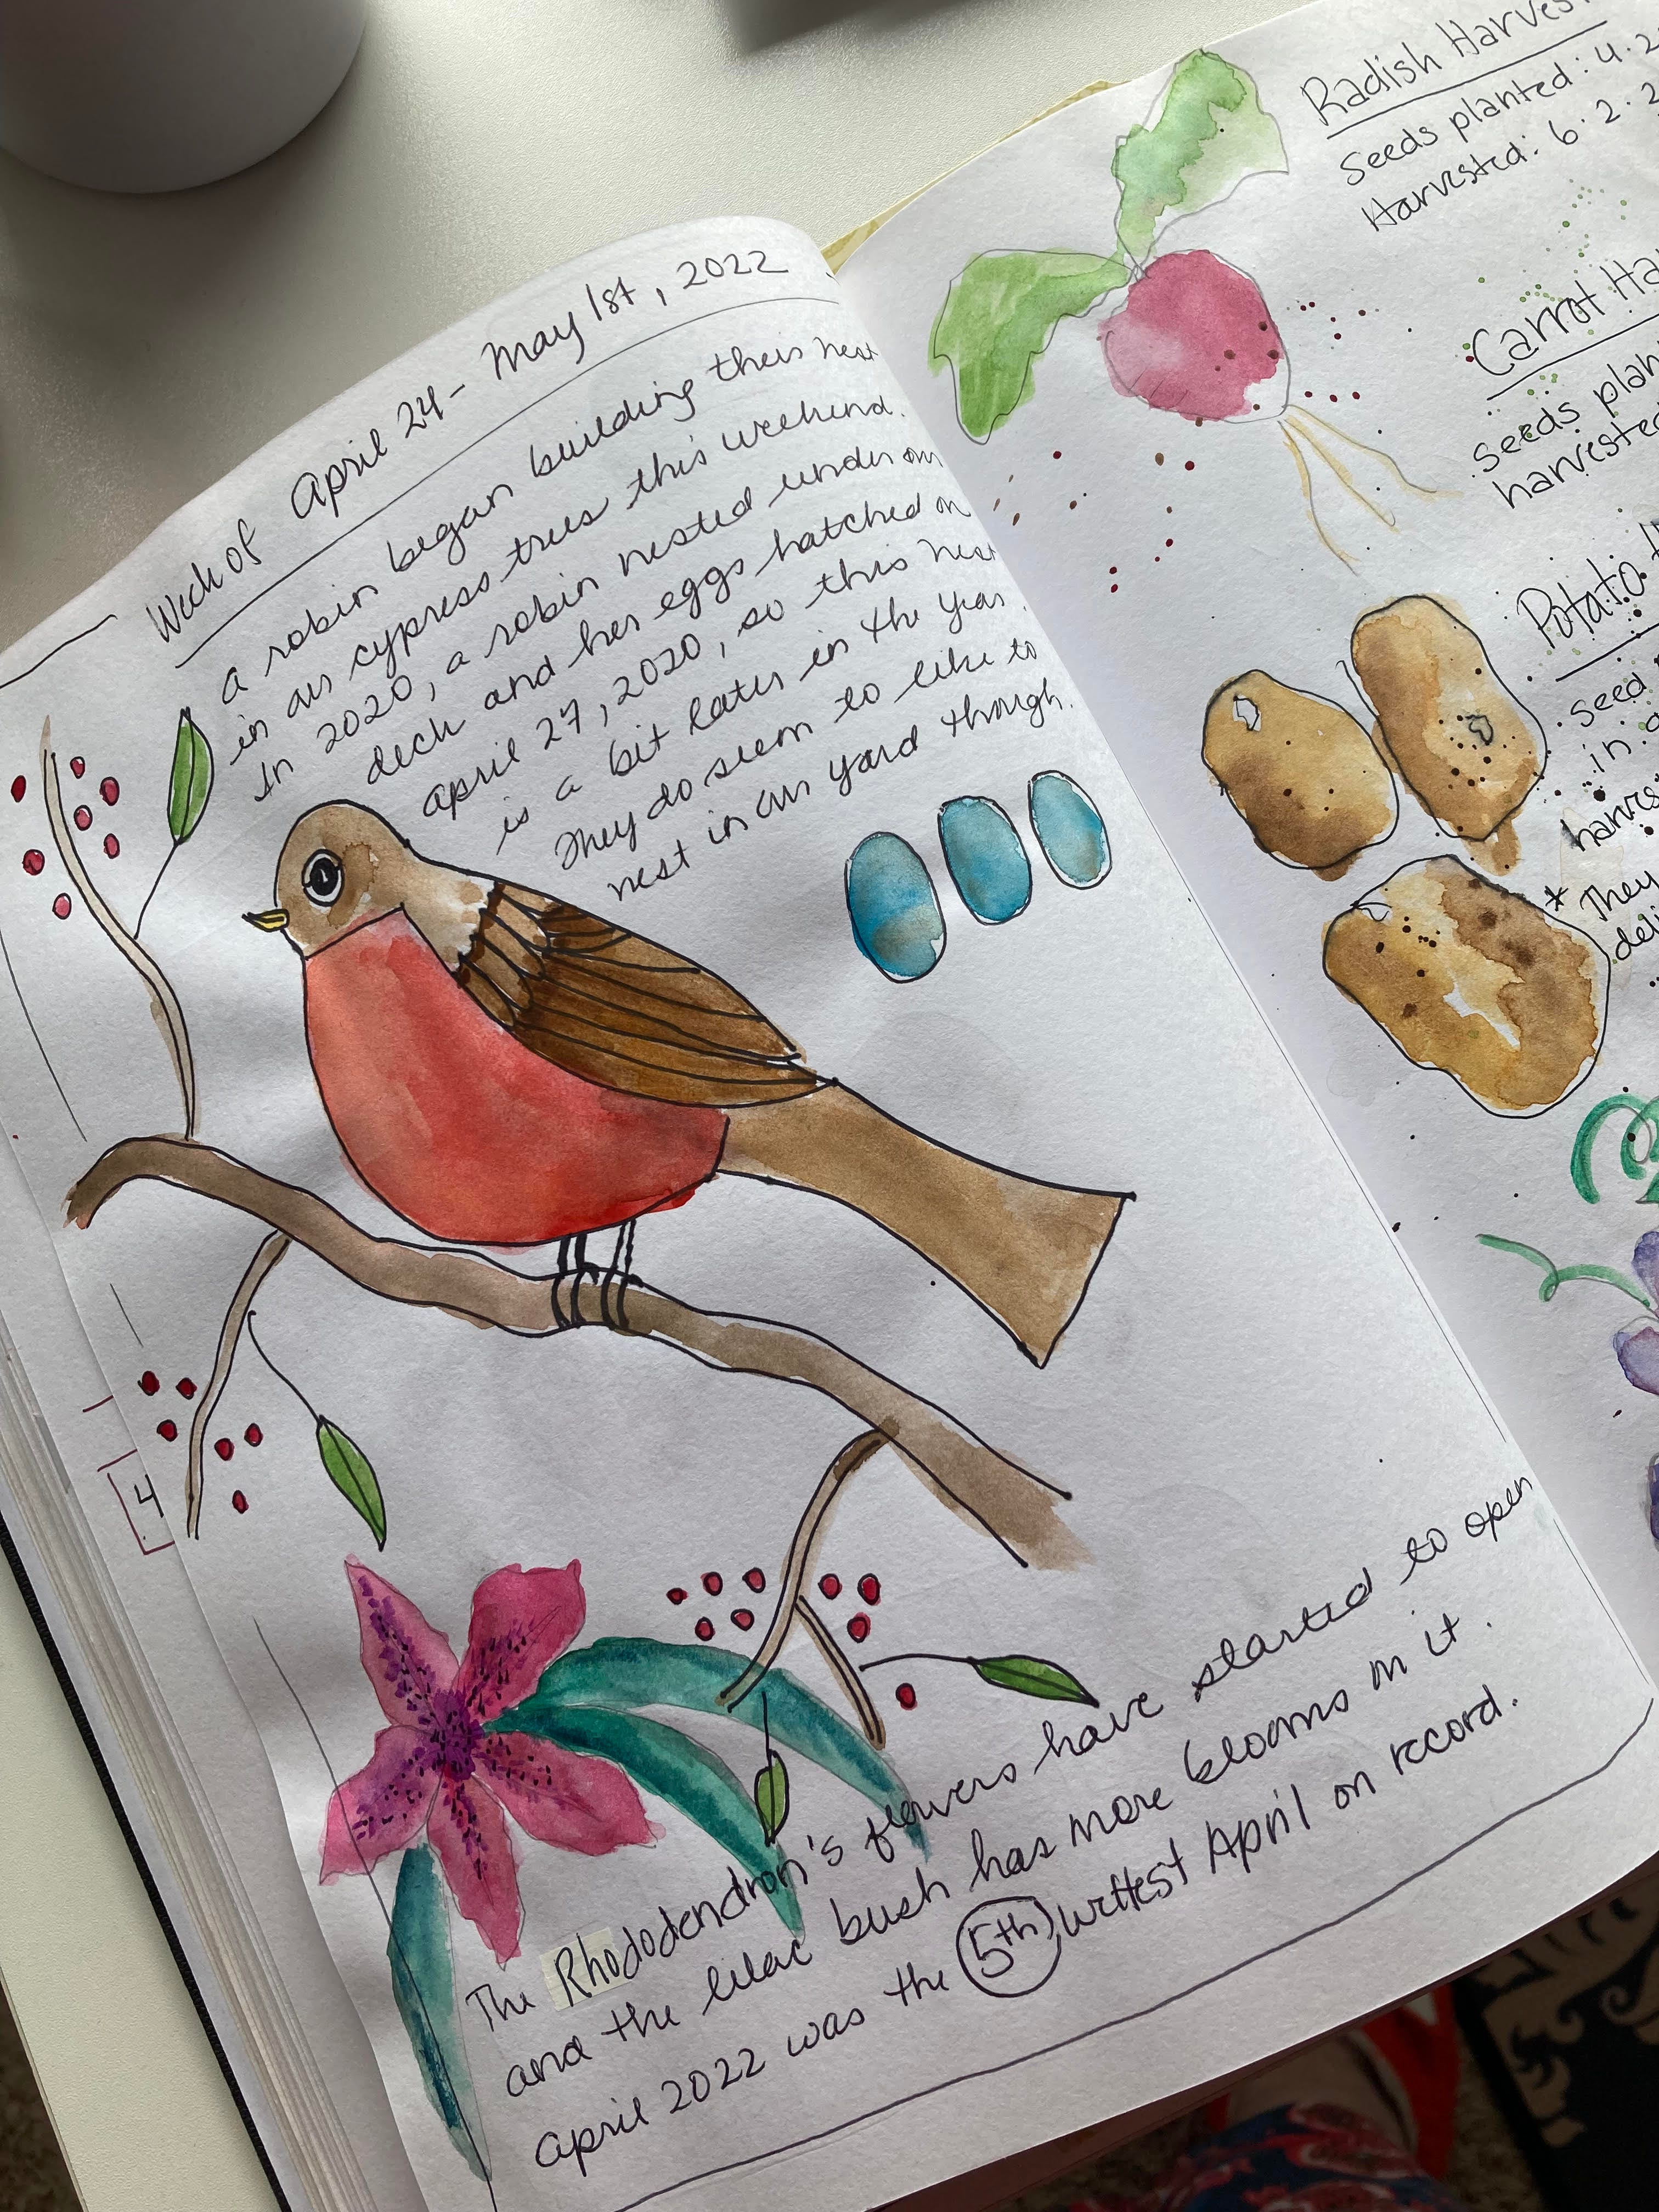 Week of April 24 - May 1st, 2022
A robin began building their nest
in our cypress trees this weekend.
In 2020, a robin nested under our
deck and her eggs hatched on
April 27, 2020, so this nest
is a bit later in the year.
They do seem to like to
nest in our yard though.
4
The Rhododendron's flowers have started to open
and the lilac bush has more blooms on it.
April 2022 was the 5th wettest April on record.
Radish Harvest
Seeds planted: 4.2
Harvested: 6.2.2
Carrot Ha
seeds plan
harvested
Potato H
seed
in
harves
* They
deli